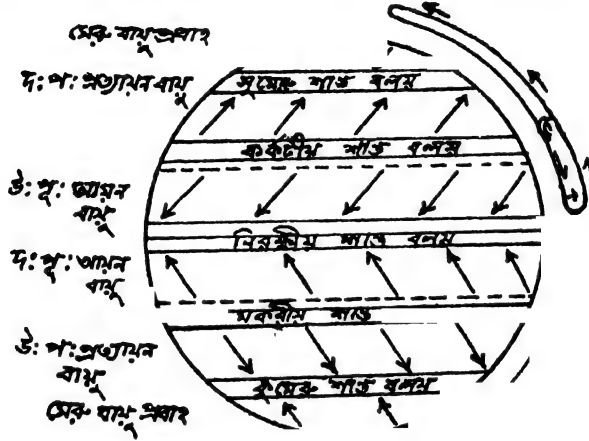 মেরু বায়ু প্রবাহ
দ: প: প্রত্যায়ন বায়ু
সুমেরু শান্ত বলয়
কর্কটীয় শান্ত বলয়
উ: পূ: আয়ন
বায়ু
নিরক্ষীয় শান্ত বলয়
দ: পূ: আয়ন
বায়ু
মকরীয় শান্ত
উ: প: প্রত্যায়ন
বায়ু
কুমেরু শান্ত বলয়
মেরু বায়ু প্রবাহ